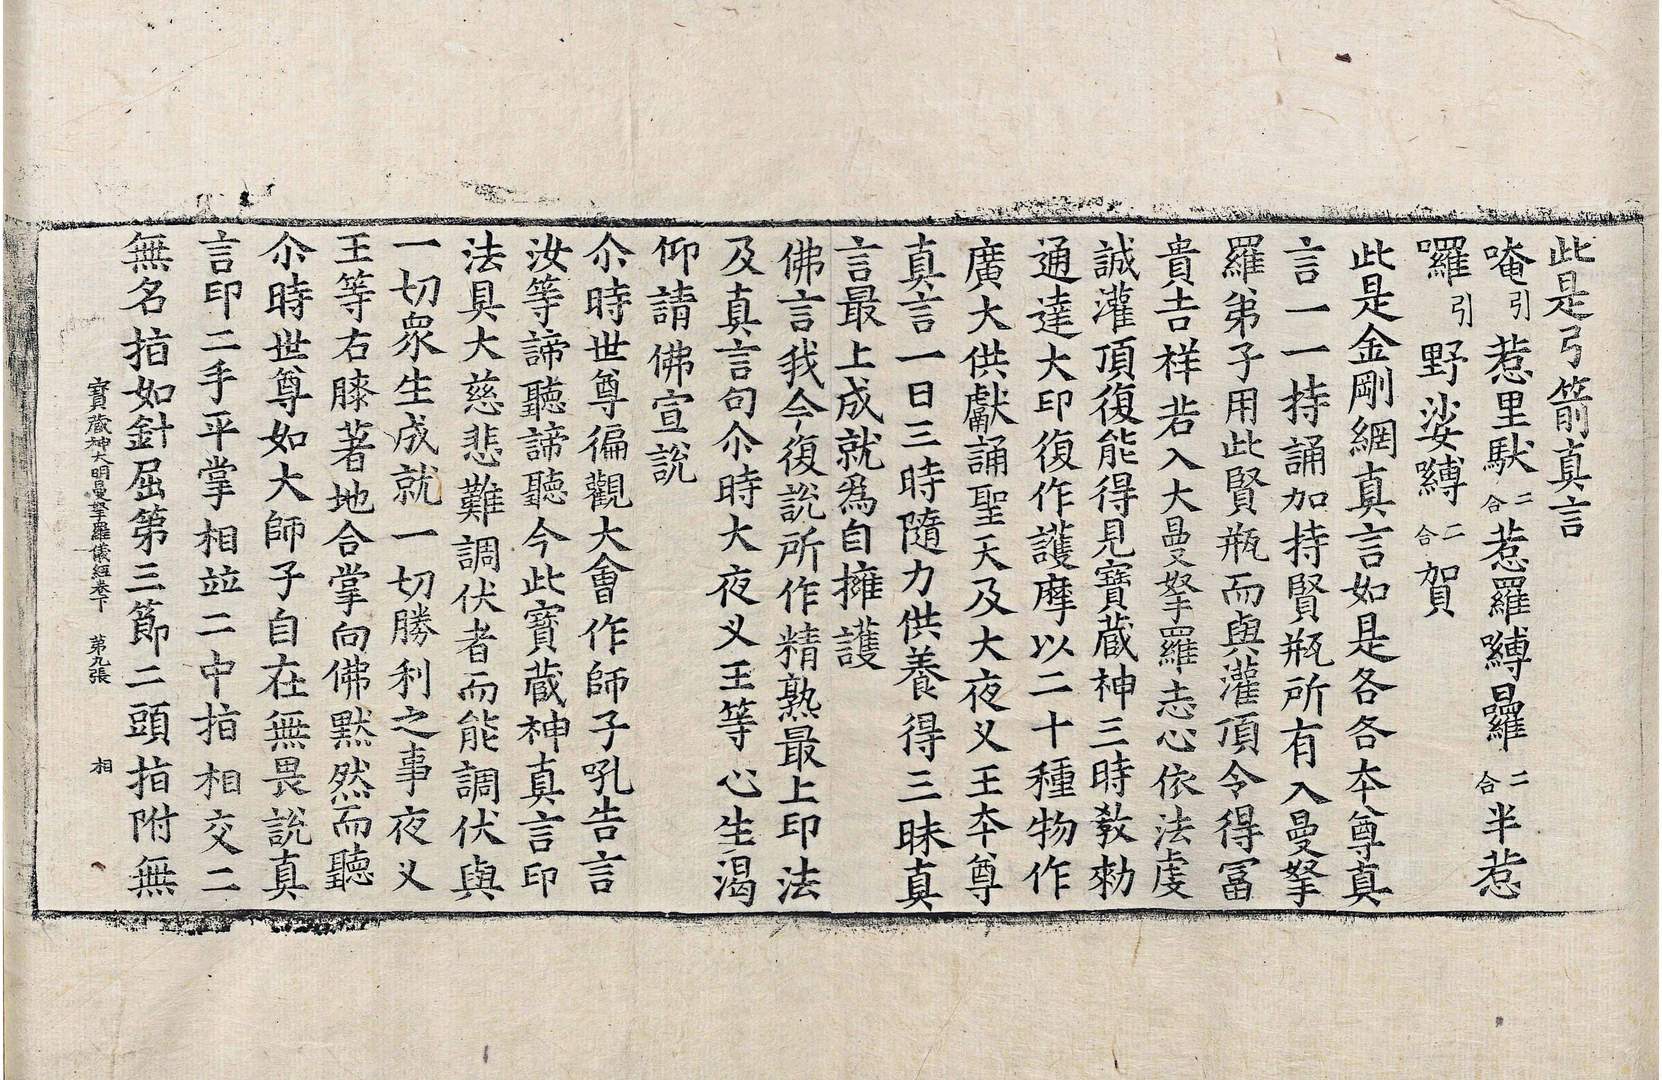 此是弓箭真言
唵引惹里馱二合惹羅嚩囉二合半惹
囉引野娑嚩二合賀
此是金剛網真言如是各各本尊真
言一一持誦加持賢瓶所有入曼拏
羅弟子用此賢瓶而與灌頂令得冨
貴吉祥若入大曼拏羅志心依法虔
誠灌頂復能得見寶藏神三時教勑
通達大印復作護摩以二十種物作
廣大供獻誦聖天及大夜叉王本尊
真言一日三時隨力供養得三昧真
言最上成就為自擁護
佛言我今復說所作精熟最上印法
及真言句尒時大夜叉王等心生渴
仰請佛宣說
尒時世尊徧觀大會作師子吼告言
汝等諦聽諦聽今此寶藏神真言印
法具大慈悲難調伏者而能調伏與
一切衆生成就一切勝利之事夜叉
王等右膝著地合掌向佛默然而聽
尒時世尊如大師子自在無畏說真
言印二手平掌相竝二中指相交二
無名指如針屈第三節二頭指附無
寶藏神大明曼拏羅儀經卷下 第九張 相